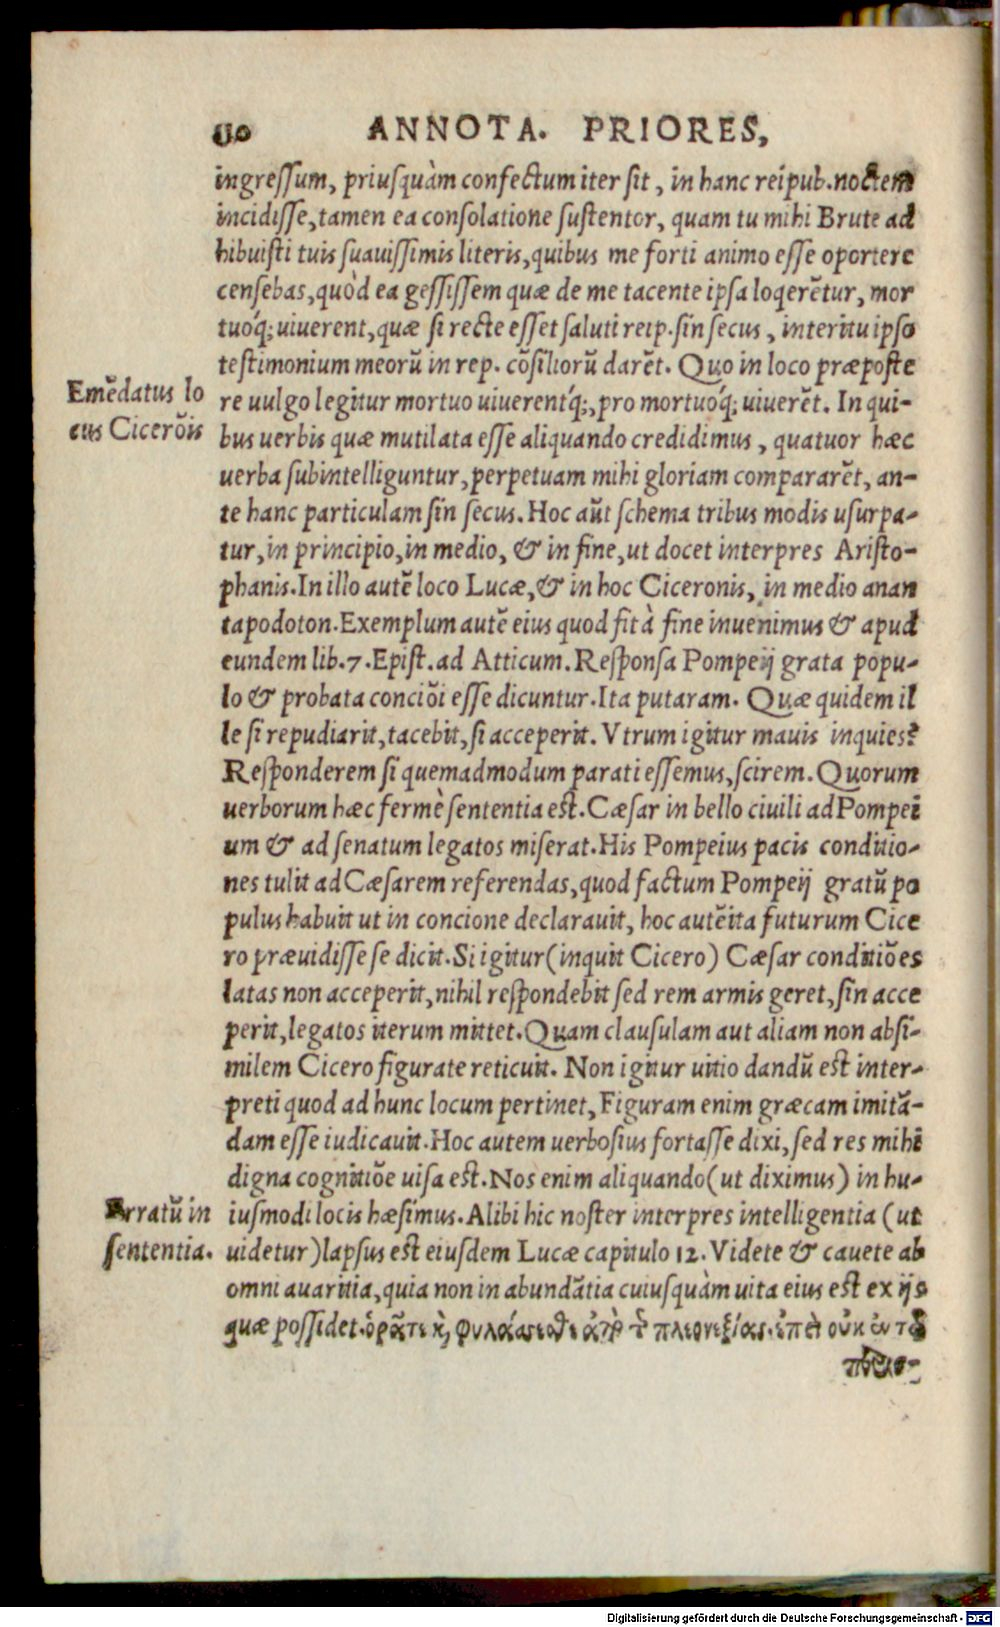 ANNOTA. PRIORES,
ingressum, priusquàm confectum iter sit, in hanc reipub. noctem
incidisse, tamen ea consolatione sustentor, quam tu mihi Brute ad
hibuisti tuis suauissimis literis, quibus me forti animo esse oportere
censebas, quòd ea gessissem quæ de me tacente ipsa loqerẽtur, mor
tuóq; uiuerent, quæ si recte esset saluti reip. sin secus, interitu ipso
testimonium meorũ in rep. cõsiliorũ darẽt. Quo in loco præposte
Emẽdatus lo
cus Cicerõis
re uulgo legitur mortuo uiuerentq́;, pro mortuóq; uiuerẽt. In qui-
bus uerbis quæ mutilata esse aliquando credidimus, quatuor hæc
uerba subintelliguntur, perpetuam mihi gloriam compararẽt, an-
te hanc particulam sin secus. Hoc aũt schema tribus modis usurpa-
tur, in principio, in medio, & in fine, ut docet interpres Aristo-
phanis. In illo autẽ loco Lucæ, & in hoc Ciceronis, in medio anan
tapodoton. Exemplum autẽ eius quod fit à fine inuenimus & apud
eundem lib. 7. Epist. ad Atticum. Responsa Pompeij grata popu-
lo & probata conciõi esse dicuntur. Ita putaram. Quæ quidem il
le si repudiarit, tacebit, si acceperit. Vtrum igitur mauis inquies?
Responderem si quemadmodum parati essemus, scirem. Quorum
uerborum hæc fermè sententia est. Cæsar in bello ciuili ad Pompei
um & ad senatum legatos miserat. His Pompeius pacis conditio-
nes tulit ad Cæsarem referendas, quod factum Pompeij gratũ po
pulus habuit ut in concione declarauit, hoc autẽ ita futurum Cice
ro præuidisse se dicit. Si igitur (inquit Cicero) Cæsar conditiões
latas non acceperit, nihil respondebit sed rem armis geret, sin acce
perit, legatos iterum mittet. Quam clausulam aut aliam non absi-
milem Cicero figurate reticuit. Non igitur uitio dandũ est inter-
preti quod ad hunc locum pertinet, Figuram enim græcam imitã-
dam esse iudicauit. Hoc autem uerbosius fortasse dixi, sed res mihi
digna cognitiõe uisa est. Nos enim aliquando (ut diximus) in hu-
Erratũ in
sententia.
iusmodi locis hæsimus. Alibi hic noster interpres intelligentia (ut
uidetur) lapsus est eiusdem Lucæ capitulo 12. Videte & cauete ab
omni auaritia, quia non in abundãtia cuiusquàm uita eius est ex ijs
quæ possidet. ὁρᾶτε καὶ φυλάσσεσθε ἀπὸ τῆς πλεονεξίας. ἐπεὶ οὐκ ἐν τῷ
Digitalisierung gefördert durch die Deutsche Forschungsgemeinschaft - DFG